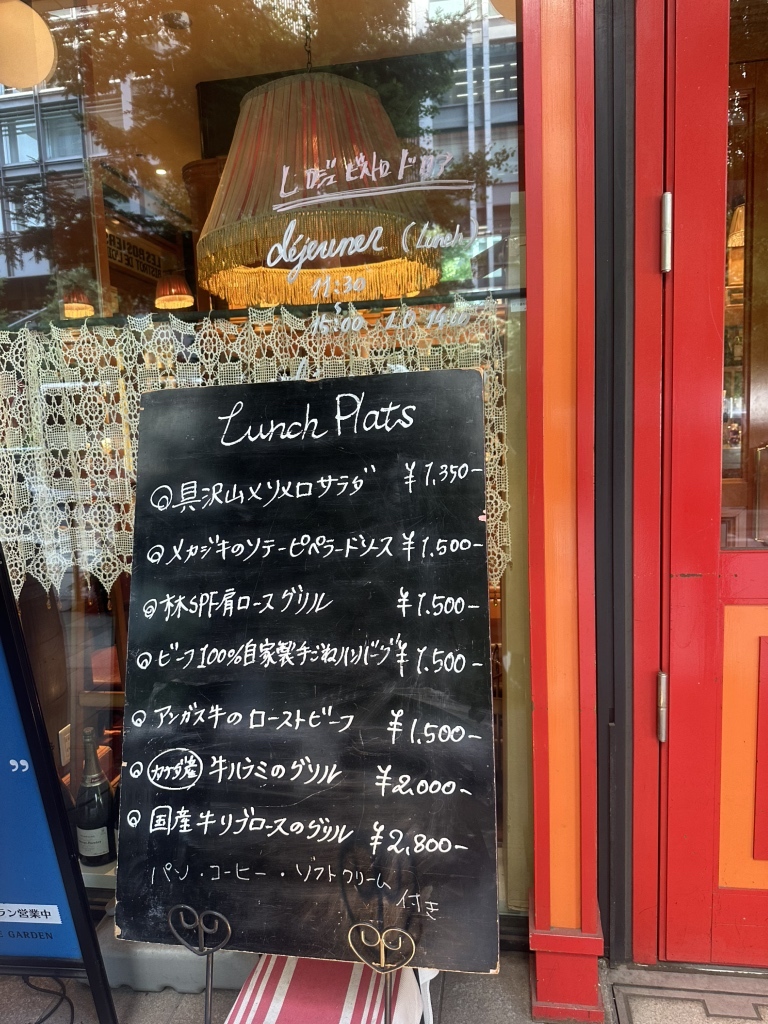 レ ロジェ ビストロ ドロア
déjeuner (Lunch)
11:30
~
15:00 L.O 14:00
LES ROSIERS
Lunch Plats
◎具沢山メリメロサラダ ¥1,350-
◎メカジキのソテーピペラードソース ¥1,500-
◎林SPF肩ロースグリル ¥1,500-
◎ビーフ100%自家製手ごねハンバーグ ¥1,500-
◎アンガス牛のローストビーフ ¥1,500-
◎ 牛ハラミのグリル ¥2,000-
◎国産牛リブロースのグリル ¥2,800-
パン・コーヒー・ソフトクリーム
付き
”
ラン営業中
E GARDEN